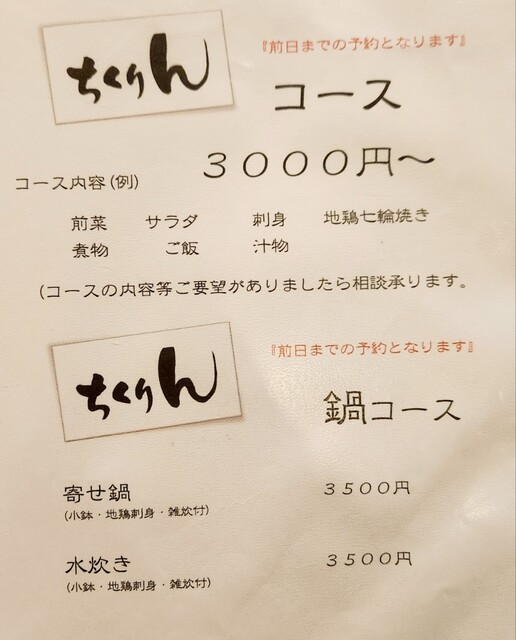 ちくりん
『前日までの予約となります』
コース
3000円～
コース内容(例)
前菜 サラダ 刺身 地鶏七輪焼き
煮物 ご飯 汁物
(コースの内容等ご要望がありましたら相談承ります。
ちくりん
『前日までの予約となります』
鍋コース
寄せ鍋 3500円
(小鉢・地鶏刺身・雑炊付)
水炊き 3500円
(小鉢・地鶏刺身・雑炊付)